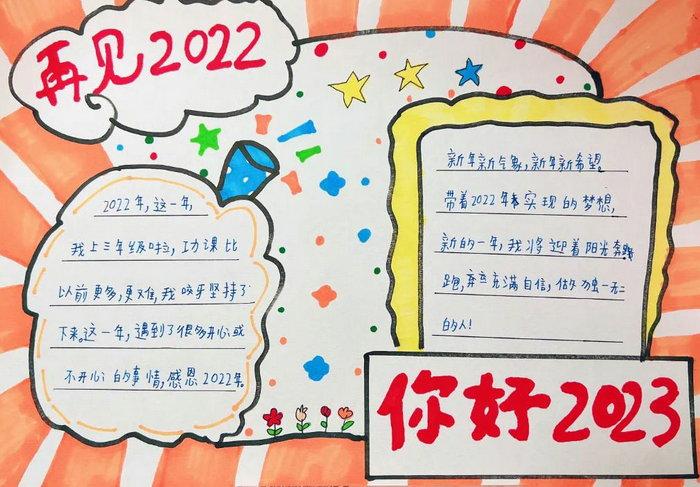 再见2022
2022年,这一年,
我上三年级啦,功课比
以前更多,更难,我咬牙坚持了
下来。这一年,遇到了很多开心或
不开心的事情,感恩2022年。
新年新气象,新年新希望。
带着2022年未实现的梦想,
新的一年,我将迎着阳光奔跑
跑,并充满自信,做独一无二
的人!
你好2023